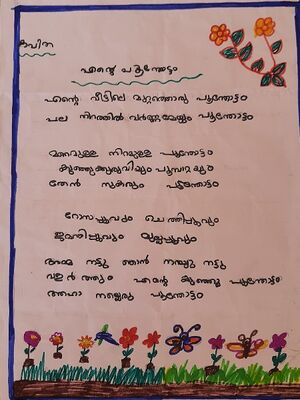 കവിത
എന്റെ പൂന്തോട്ടം
എന്റെ വീട്ടിലെ മുറ്റത്തൊരു പൂന്തോട്ടം
പല നിറത്തിൽ പൂന്തോട്ടം
മണമുള്ള നിറമുള്ള പൂന്തോട്ടം
കുഞ്ഞുക്കുരുവിയും പൂമ്പാറ്റയും
തേൻ നുകരും പൂന്തോട്ടം
റോസപൂവും ചെത്തിപ്പൂവും
ജമന്തിപ്പൂവും മുല്ലപ്പൂവും
അമ്മ നട്ടു ഞാൻ നനച്ചു നട്ടു
വളർത്തും എന്റെ കുഞ്ഞു പൂന്തോട്ടം
ആഹാ നല്ലൊരു പൂന്തോട്ടം